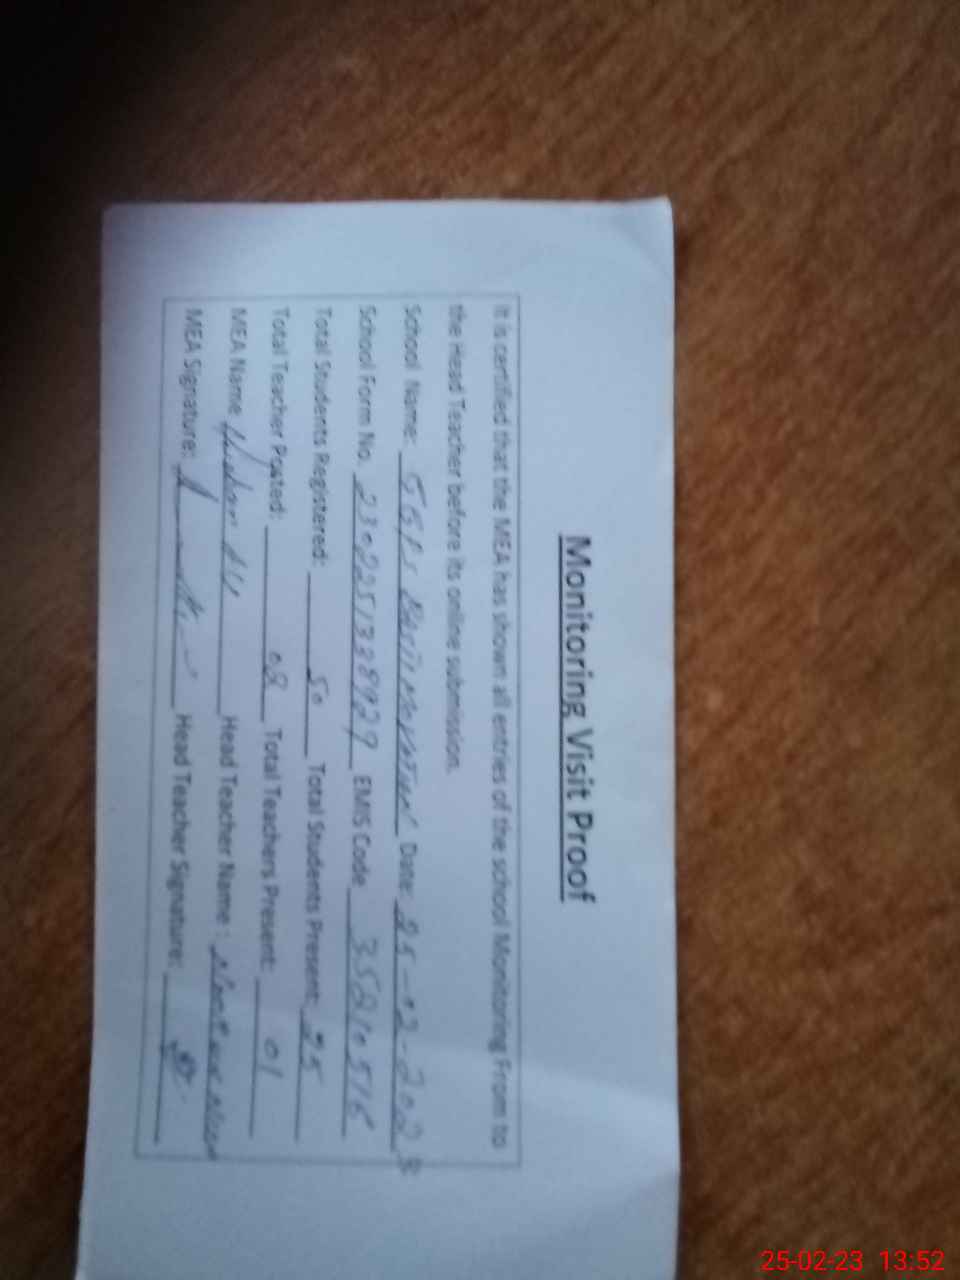 Monitoring Visit Proof
It is certified that the MEA has shown all entries of the school Monitoring From to
the Head Teacher before its online submission.
School Name: Date: 25-02-2023
School Form No. EMIS Code 35210516
Total Students Registered: 50 Total Students Present: 25
Total Teacher Posted: 02 Total Teachers Present: 01
MEA Name Ali Head Teacher Name:
MEA Signature: Head Teacher Signature:
25-02-23 13:52